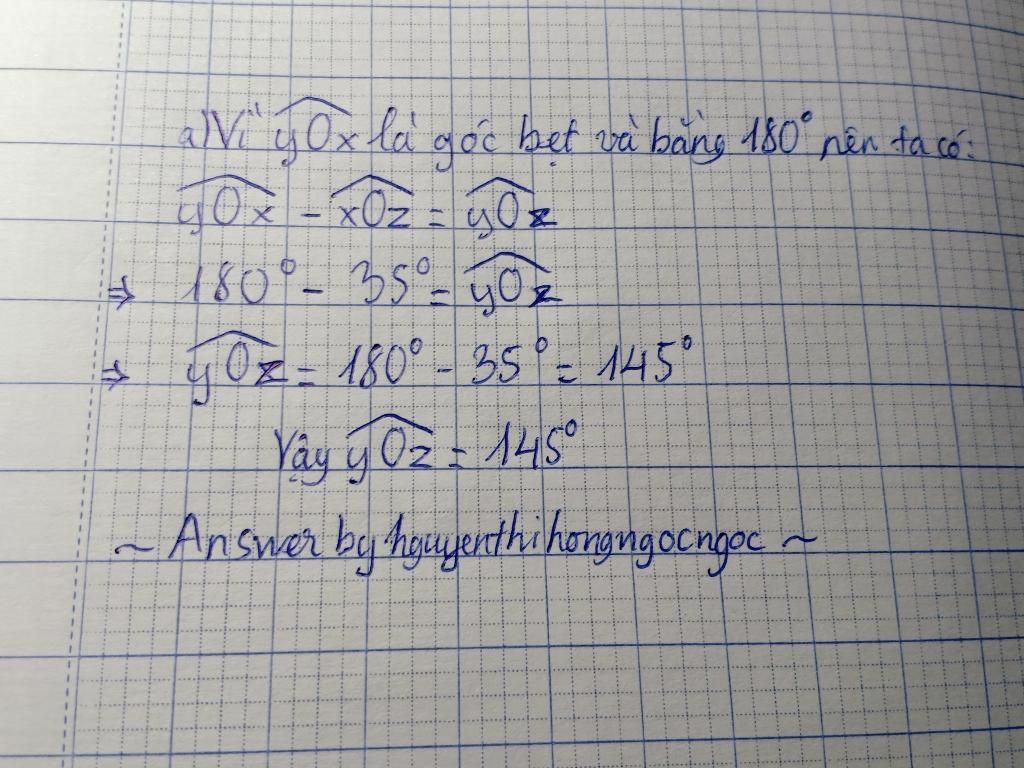 a) Vì yOx là góc bẹt và bằng 180° nên ta có:
yOx - xOz = yOz
⇒ 180° - 35° = yOz
⇒ yOz = 180° - 35° = 145°
Vậy yOz = 145°
~ Answer by nguyenthihongngocngoc ~